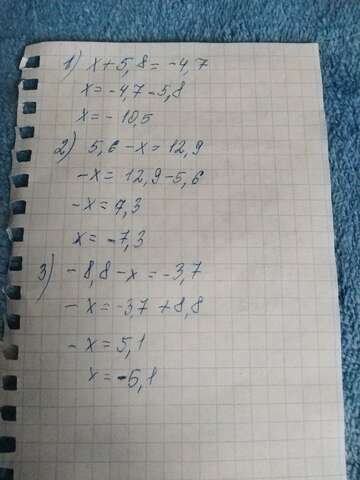 1) x + 5,8 = -4,7
x = -4,7 - 5,8
x = - 10,5
2) 5,6 - x = 12,9
-x = 12,9 - 5,6
-x = 7,3
x = -7,3
3) - 8,8 - x = -3,7
- x = -3,7 + 8,8
- x = 5,1
x = -5,1